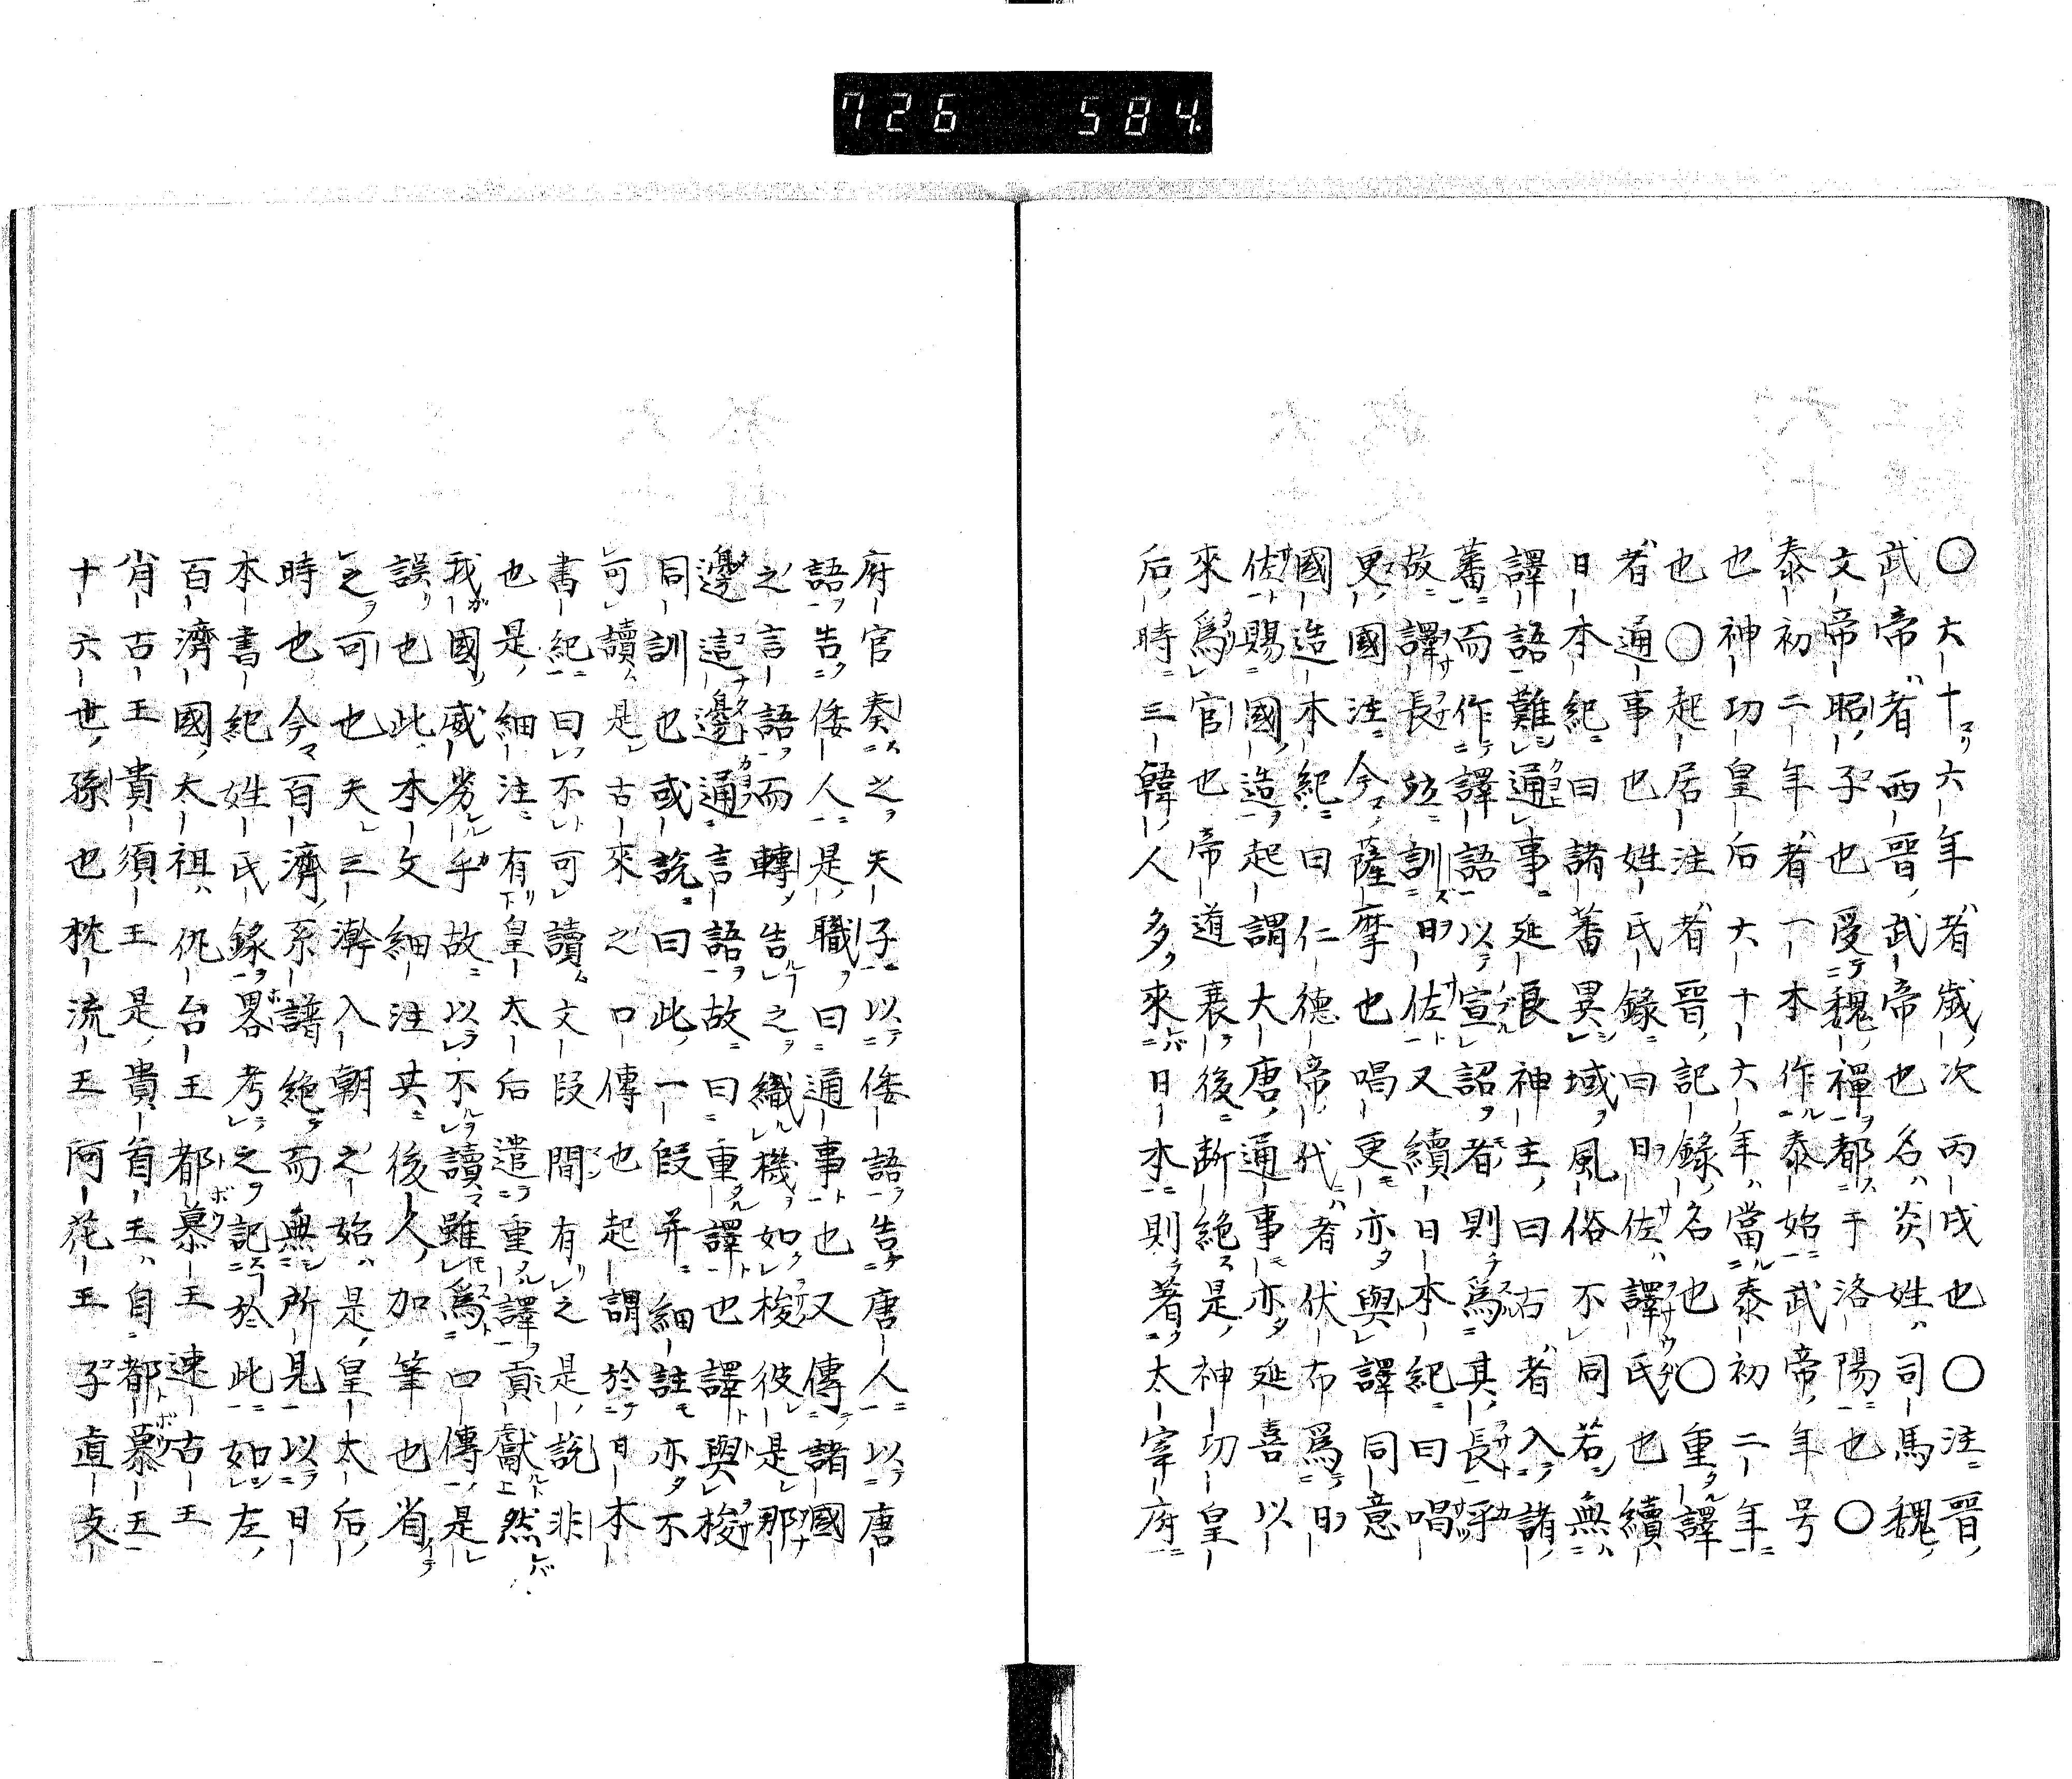 726 584.
〇大十六年者歲次丙戌也〇注晋
武帝者西晋武帝也名炎姓司馬魏
文帝昭子也受魏禪都于洛陽也〇
泰初二年者一本作泰始武帝年号
也神功皇后六十六年當泰初二年
也〇起居注者晋記錄名也〇重譯
者通事也姓氏錄曰曰佐譯氏也續
日本紀曰諸蕃異域風俗不同若無
譯語難通事延良神主曰古者入諸
蕃而作譯語以宣詔者則爲其長呼
故譯長玆訓曰佐又續日本紀曰唱
更國注今薩摩也唱更亦與譯同意
國造本紀曰仁德帝代者伏布爲曰
佐賜國造起謂大唐通事亦延喜以
來爲官也帝道衰後断絶是神功皇
后時三韓人多來日本則著太宰府
府官奏之天子以倭語告唐人以唐
語告倭人是職曰通事也又傳諸國
之言語而轉告之織機如梭彼是那
邊這邊通言語故曰重譯也譯與梭
同訓也或説曰此一段并細註亦不
可讀是古來之口傳也起謂於日本
書紀曰不可讀文段間有之是説非
也是細注有皇太后遣重譯貢獻然
我國威劣乎故以不讀雖爲口傳是
誤也此本文細注其後人加筆也省
之可也夫三瀚入朝之始是皇太后
時也今百濟系譜絶而無所見以日
本書紀姓氏錄畧考之記於此如左
百濟國太祖仇台王都慕王速古王
肖古王貴須王是貴首王自都慕王
十六世孫也枕流王阿花王子直支